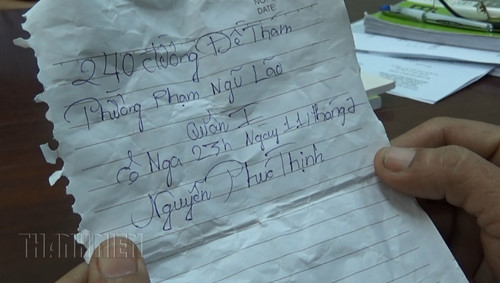 NO
DATE
240 đường Đề Thám
Phường Phạm Ngũ Lão
Quận I
cô Nga 23h Ngày 11 tháng 7
Nguyễn Phúc Thịnh
THANH NIEN